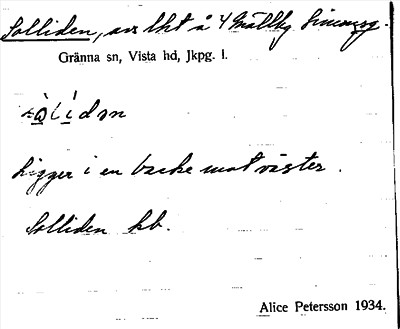 Solliden, avs lht å 4 Målskog
Gränna sn, Vista hd, Jkpg. l.
sòlídən
Ligger i en backe mot väster.
Solliden kb.
Alice Petersson 1934.